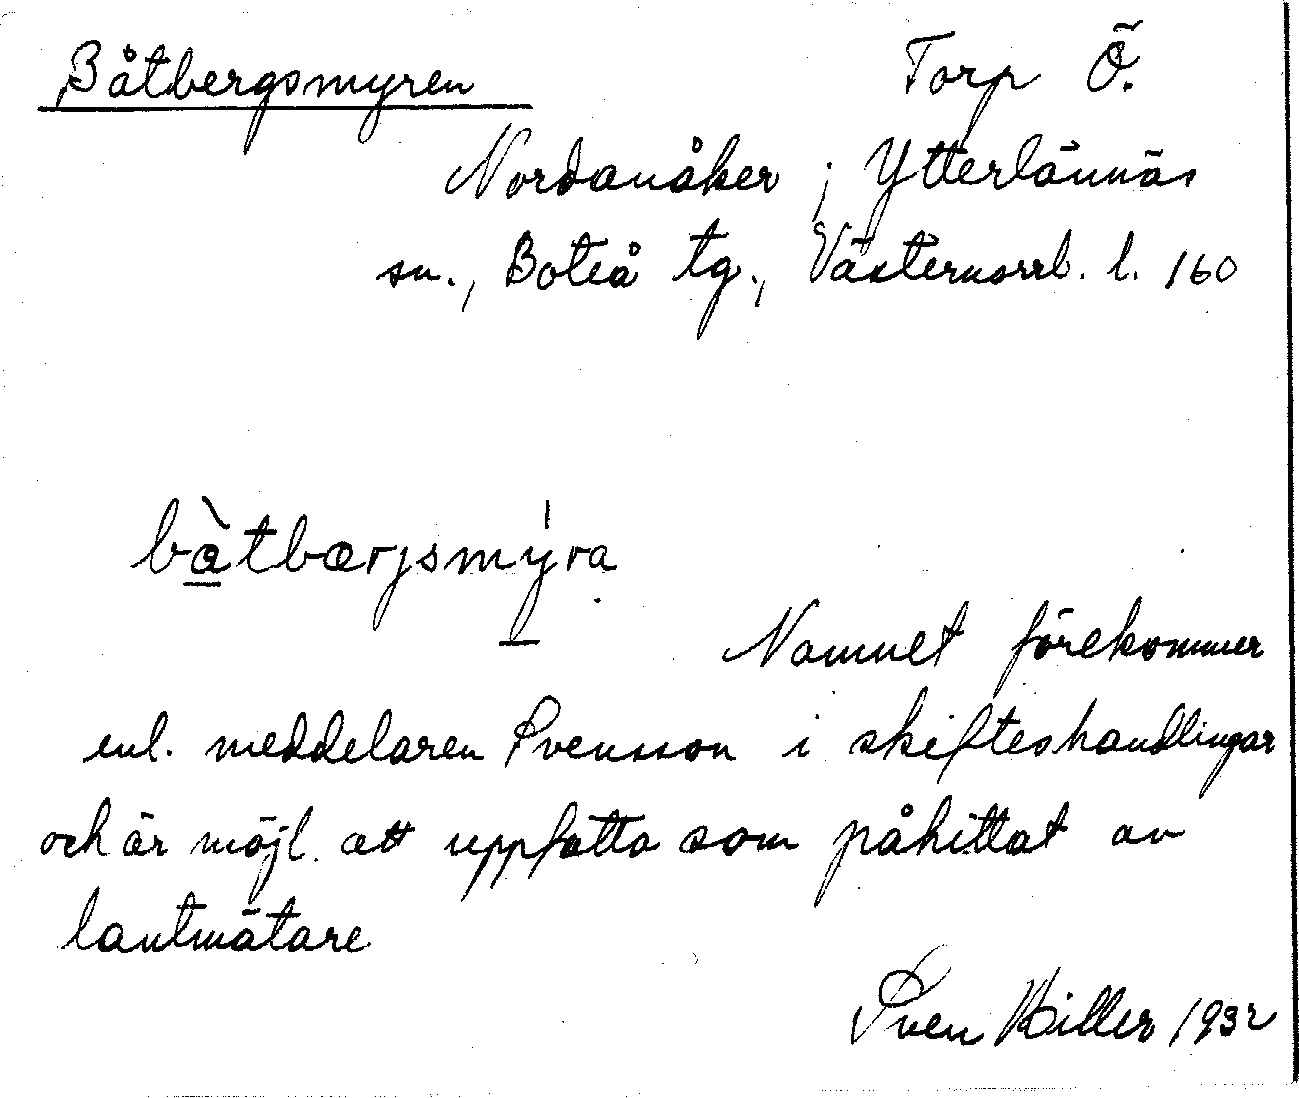 Båtbergsmyren Torp Ö.
Nordanåker ; Ytterlännäs
sn., Boteå tg., Västernorrl. l. 160
bàtbærjsmýra
Namnet förekommer
enl. meddelaren Svensson i skifteshandlingar
och är möjl. att uppfatta som påhittat av
lantmätare
Sven Hiller 1932